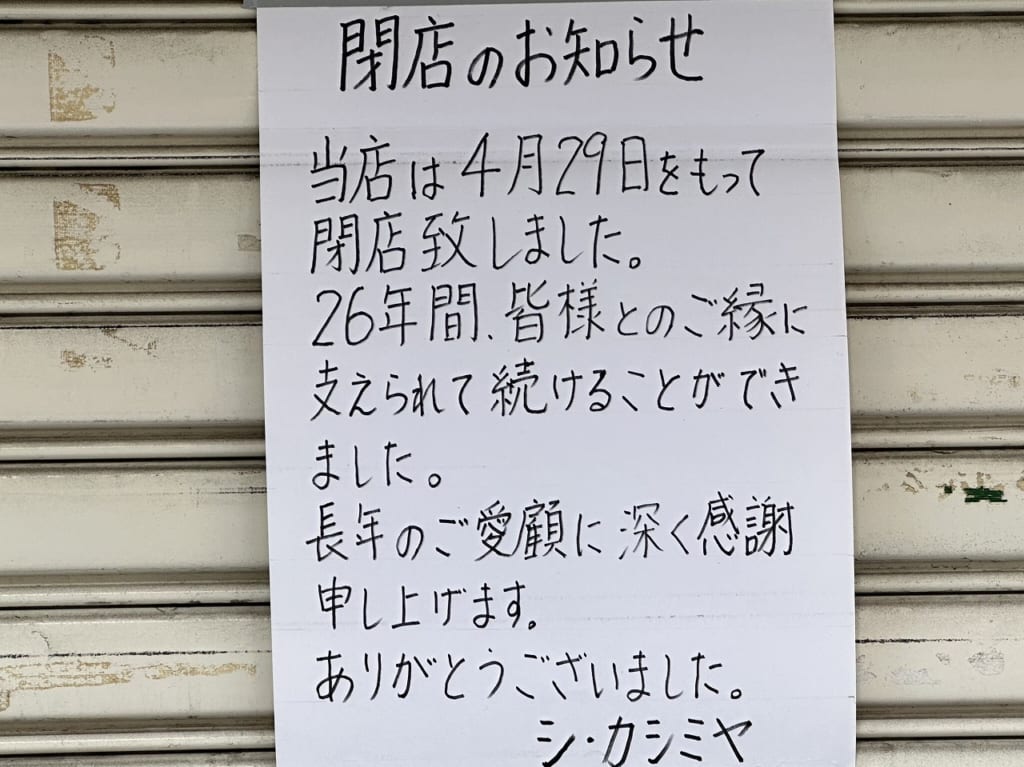 閉店のお知らせ
当店は4月29日をもって
閉店致しました。
26年間、皆様とのご縁に
支えられて続けることができ
ました。
長年のご愛顧に深く感謝
申し上げます。
ありがとうございました。
シ・カシミヤ